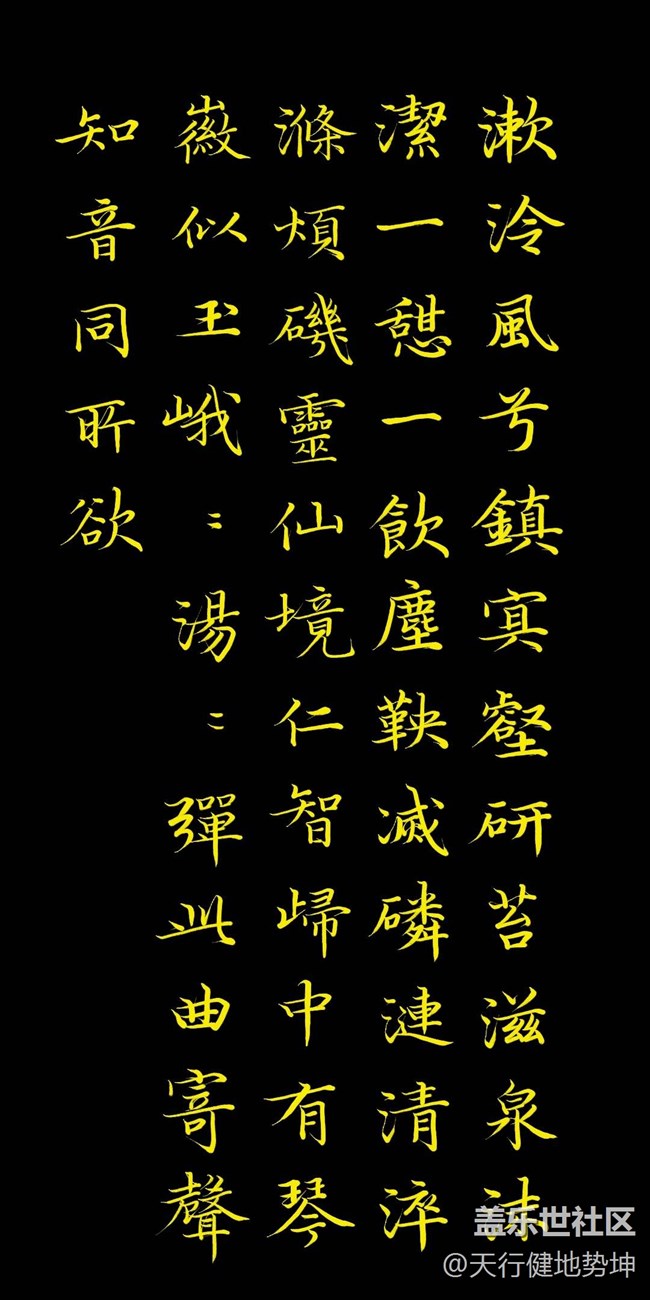 漱泠風兮鎮㝠壑研苔滋泉沫
潔一憇一飲塵鞅滅磷漣清淬
滌煩磯靈仙境仁智歸中有琴
徽似玉峨〻湯〻彈此曲寄聲
知音同所欲
盖乐世社区
@天行健地势坤